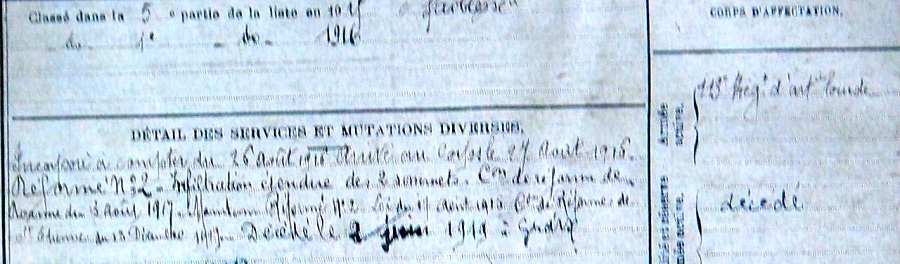 Classé dans la 5e partie de la liste en 1915
do 1e do 1916
CORPS D'AFFECTATION.
113e Régt d'artie lourde
Armée
active.
DÉTAIL DES SERVICES ET MUTATIONS DIVERSES.
Incorporé à compter du 26 août 1916 Arrivé au Corps le 27 Août 1916.
Réformé N°2 - Infiltration étendue des 2 sommets. Con de réforme de
Roanne du 3 août 1917. Maintenu Réformé N°2. Loi du Août Con de Réformes de
Etienne du 13 Décembre 1917. Décédé le 2 juin 1919 à
décédé